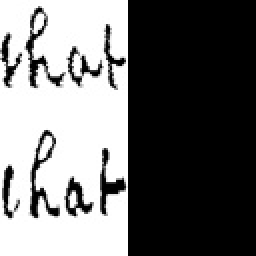 that
that